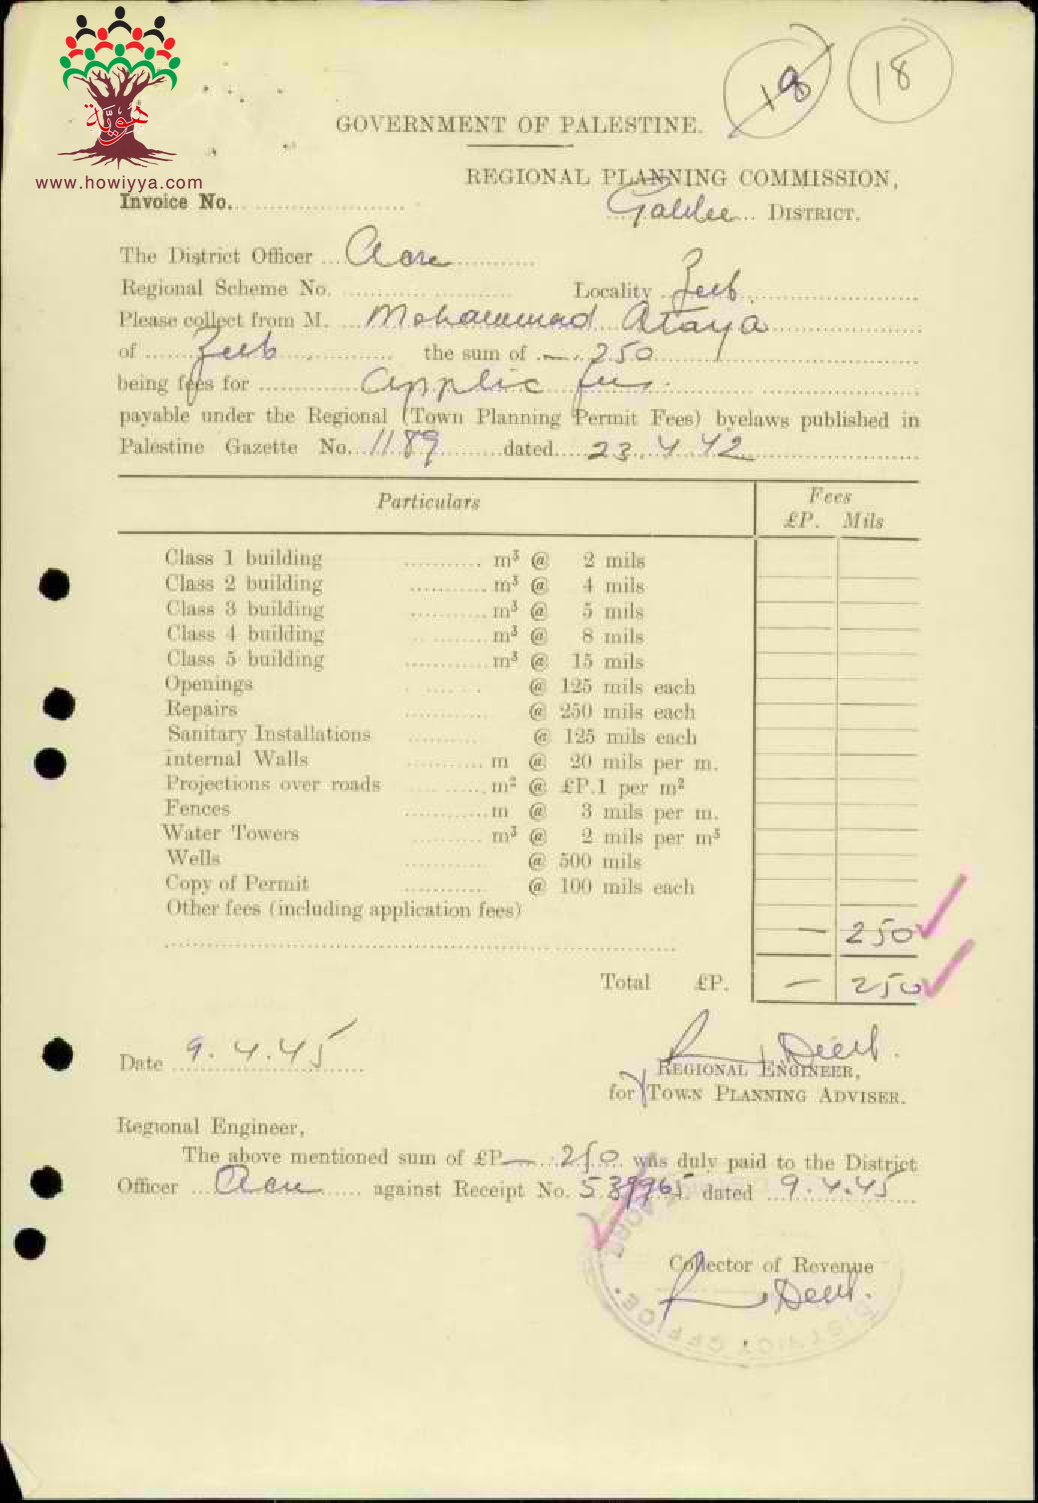 18 18
هَويّة
www.howiyya.com
GOVERNMENT OF PALESTINE.
REGIONAL PLANNING COMMISSION,
Invoice No. Galilee DISTRICT.
The District Officer Acre
Regional Scheme No. Locality Zeeb
Please collect from M. Mohammad Ataya
of Zeeb the sum of — 250
being fees for applic fees.
payable under the Regional (Town Planning Permit Fees) byelaws published in
Palestine Gazette No. 1189 dated 23.4.42
Particulars Fees
£P. Mils
Class 1 building m³ @ 2 mils
Class 2 building m³ @ 4 mils
Class 3 building m³ @ 5 mils
Class 4 building m³ @ 8 mils
Class 5 building m³ @ 15 mils
Openings @ 125 mils each
Repairs @ 250 mils each
Sanitary Installations @ 125 mils each
Internal Walls m @ 20 mils per m.
Projections over roads m² @ £P.1 per m²
Fences m @ 3 mils per m.
Water Towers m³ @ 2 mils per m³
Wells @ 500 mils
Copy of Permit @ 100 mils each
Other fees (including application fees)
— 250
Total £P. — 250
Date 9.4.45
REGIONAL ENGINEER,
for TOWN PLANNING ADVISER.
Regional Engineer,
The above mentioned sum of £P — 250 was duly paid to the District
Officer Acre against Receipt No. 539965 dated 9.4.45
Collector of Revenue
DISTRICT OFFICE